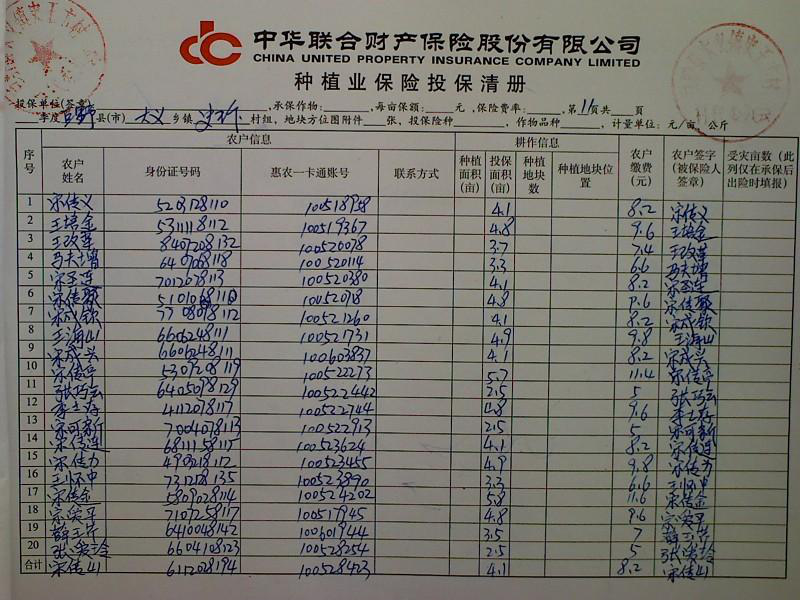 中华联合财产保险股份有限公司
CHINA UNITED PROPERTY INSURANCE COMPANY LIMITED
种植业保险投保清册
投保单位(签章) ,承保作物: ,每亩保额: 元 ,保险费率: ,第11页共 页
李庄 县(市) 大义 乡镇 村组, 地块方位图附件 张、投保险种 ,作物品种 , 计量单位: 元/亩、公斤
序号 农户信息 耕作信息 农户缴费(元) 农户签字(被保险人签章) 受灾亩数(此列仅在承保后出险时填报)
农户姓名 身份证号码 惠农一卡通账号 联系方式 种植面积(亩) 投保面积(亩) 种植地块数 种植地块位置
1 宋传义 5203128110 100518958 4.1 8.2 宋传义
2 王培金 531118112 100519367 4.8 9.6 王培金
3 王改莲 8407208132 100520078 3.7 7.4 王改莲
4 100520114 3.3 6.6
5 7012078113 100520380 4.1 8.2
6 10052018 4.8 9.6
7 宋成钦 100521260 4.1 8.2 宋成钦
8 王海山 6606248111 100521731 4.9 9.8 王海山
9 宋成兴 6606248111 100603837 4.1 8.2 宋成兴
10 宋传亭 5309208119 100522273 5.7 11.4 宋传亭
11 6405098129 100522442 2.5 5
12 4112078117 100522744 4.8 9.6
13 宋可新 7004078113 100522913 2.5 5 宋可新
14 宋传连 6811158117 100523624 4.1 8.2 宋传连
15 宋传力 100523455 4.9 9.8 宋传力
16 王怀中 731218135 100523890 3.3 6.6 王怀中
17 宋传金 5809028114 100524202 5.8 11.6 宋传金
18 7107258117 100517945 4.8 9.6
19 薛玉芹 6410048142 100601944 3.5 7 薛玉芹
20 6604108123 100528254 2.5 5
合计 宋传山 6112028194 100528423 4.1 8.2 宋传山